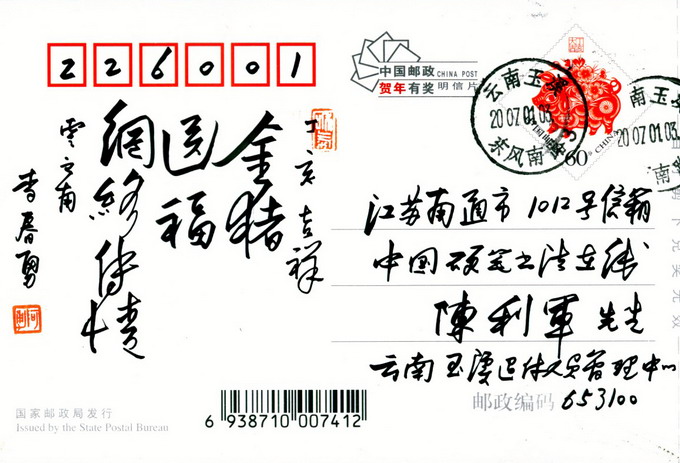 226001
中国邮政 CHINA POST
贺年有奖 明信片
云南玉溪
2007.01.03
东风南路
中国邮政
60分 CHINA
南玉溪
2007.01.03
丁亥吉祥
金猪
送福
網絡传情
雲南
李春勇
江苏南通市1012号信箱
中国硬笔书法在线
陳利軍 先生
云南玉溪退休人员管理中心
邮政编码 653100
国家邮政局发行
Issued by the State Postal Bureau
6 938710 007412